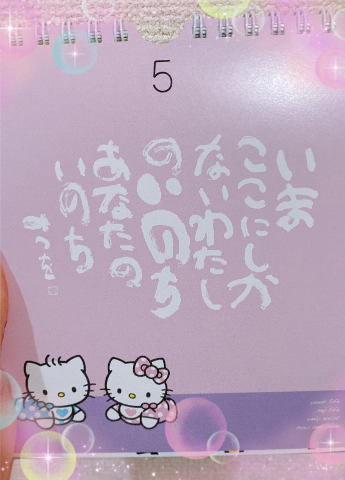 5
いま
ここにしか
ないわたし
のいのち
あなたの
いのち
みつを